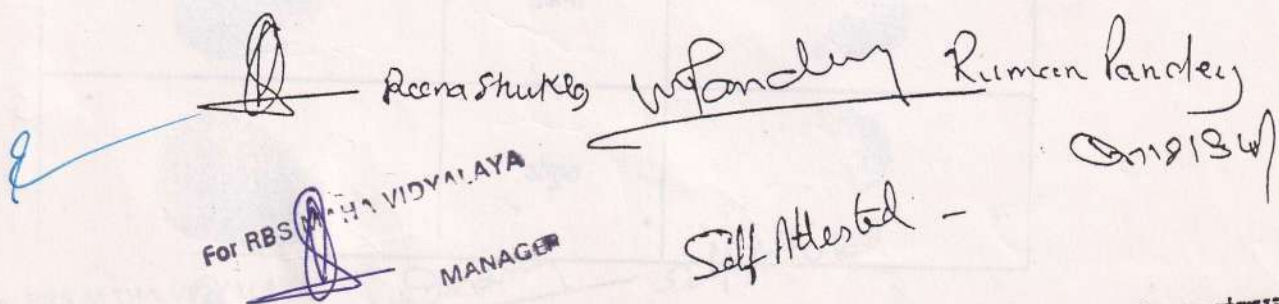 Reena Shukla Pandey Ruman Pandey
For RBS MAHA VIDYALAYA
MANAGER
Self Attested -